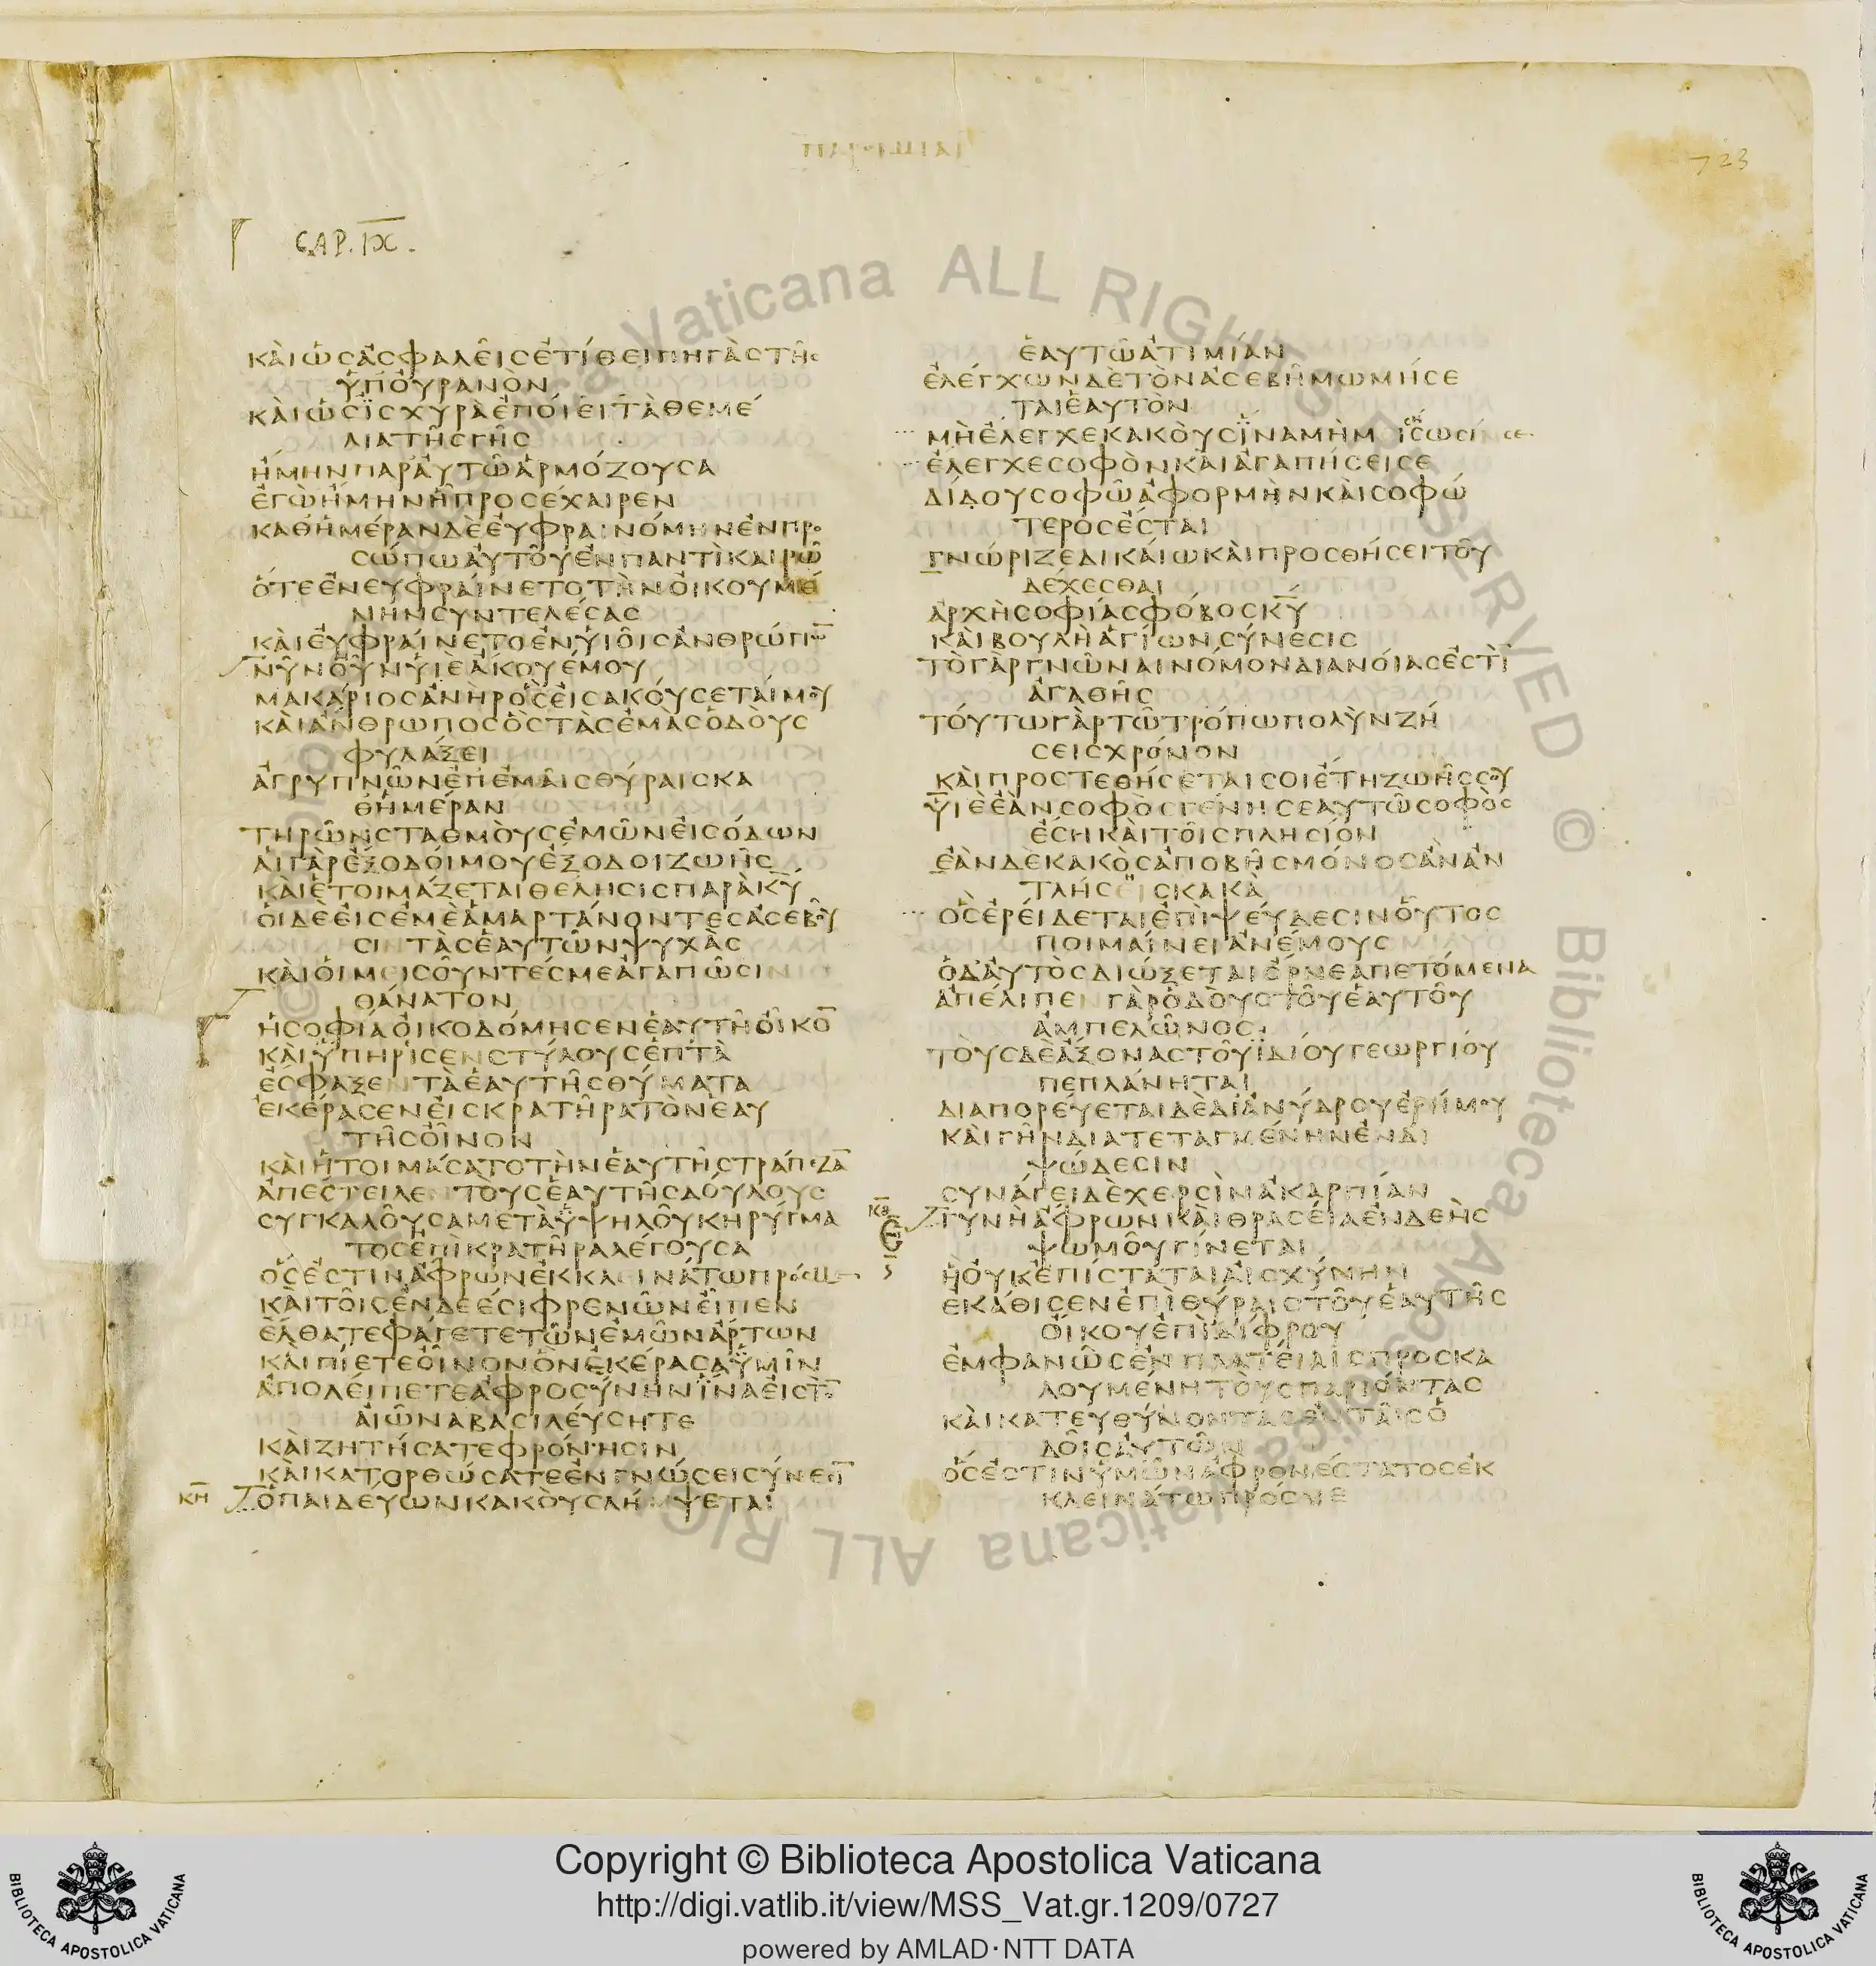 723
CAP. IX.
ΚΑΙΩΣΑΣΦΑΛΕΙΣΕΤΙΘΕΙΠΗΓΑΣΤΗΣ
ΥΠΟΥΡΑΝΟΝ
ΚΑΙΩΣΙΣΧΥΡΑΕΠΟΙΕΙΤΑΘΕΜΕ
ΛΙΑΤΗΣΓΗΣ
ΗΜΗΝΠΑΡΑΥΤΩΑΡΜΟΖΟΥΣΑ
ΕΓΩΗΜΗΝΗΠΡΟΣΕΧΑΙΡΕΝ
ΚΑΘΗΜΕΡΑΝΔΕΕΥΦΡΑΙΝΟΜΗΝΕΝΠΡΟ
ΣΩΠΩΑΥΤΟΥΕΝΠΑΝΤΙΚΑΙΡΩ
ΟΤΕΕΝΕΥΦΡΑΙΝΕΤΟΤΗΝΟΙΚΟΥΜΕ
ΝΗΝΣΥΝΤΕΛΕΣΑΣ
ΚΑΙΕΥΦΡΑΙΝΕΤΟΕΝΥΙΟΙΣΑΝΘΡΩΠΩ̅
ΝΥΝΟΥΝΥΙΕΑΚΟΥΕΜΟΥ
ΜΑΚΑΡΙΟΣΑΝΗΡΟΣΕΙΣΑΚΟΥΣΕΤΑΙΜΟΥ
ΚΑΙΑΝΘΡΩΠΟΣΟΣΤΑΣΕΜΑΣΟΔΟΥΣ
ΦΥΛΑΞΕΙ
ΑΓΡΥΠΝΩΝΕΠΕΜΑΙΣΘΥΡΑΙΣΚΑ
ΘΗΜΕΡΑΝ
ΤΗΡΩΝΣΤΑΘΜΟΥΣΕΜΩΝΕΙΣΟΔΩΝ
ΑΙΓΑΡΕΞΟΔΟΙΜΟΥΕΞΟΔΟΙΖΩΗΣ
ΚΑΙΕΤΟΙΜΑΖΕΤΑΙΘΕΛΗΣΙΣΠΑΡΑΚ̅Υ̅
ΟΙΔΕΕΙΣΕΜΕΑΜΑΡΤΑΝΟΝΤΕΣΑΣΕΒΟΥ
ΣΙΝΤΑΣΕΑΥΤΩΝΨΥΧΑΣ
ΚΑΙΟΙΜΕΙΣΟΥΝΤΕΣΜΕΑΓΑΠΩΣΙΝ
ΘΑΝΑΤΟΝ
ΗΣΟΦΙΑΟΙΚΟΔΟΜΗΣΕΝΕΑΥΤΗΟΙΚΟ̅
ΚΑΙΥΠΗΡΙΣΕΝΣΤΥΛΟΥΣΕΠΤΑ
ΕΣΦΑΞΕΝΤΑΕΑΥΤΗΣΘΥΜΑΤΑ
ΕΚΕΡΑΣΕΝΕΙΣΚΡΑΤΗΡΑΤΟΝΕΑΥ
ΤΗΣΟΙΝΟΝ
ΚΑΙΗΤΟΙΜΑΣΑΤΟΤΗΝΕΑΥΤΗΣΤΡΑΠΕΖΑ̅
ΑΠΕΣΤΕΙΛΕΝΤΟΥΣΕΑΥΤΗΣΔΟΥΛΟΥΣ
ΣΥΓΚΑΛΟΥΣΑΜΕΤΑΥΨΗΛΟΥΚΗΡΥΓΜΑ
ΤΟΣΕΠΙΚΡΑΤΗΡΑΛΕΓΟΥΣΑ
ΟΣΕΣΤΙΝΑΦΡΩΝΕΚΚΛΕΙΝΑΤΩΠΡΟΣΜΕ
ΚΑΙΤΟΙΣΕΝΔΕΕΣΙΦΡΕΝΩΝΕΙΠΕΝ
ΕΛΘΑΤΕΦΑΓΕΤΕΤΩΝΕΜΩΝΑΡΤΩΝ
ΚΑΙΠΙΕΤΕΟΙΝΟΝΟΝΕΚΕΡΑΣΑΥΜΙΝ
ΑΠΟΛΕΙΠΕΤΕΑΦΡΟΣΥΝΗΝΙΝΑΕΙΣΤΟ̅
ΑΙΩΝΑΒΑΣΙΛΕΥΣΗΤΕ
ΚΑΙΖΗΤΗΣΑΤΕΦΡΟΝΗΣΙΝ
ΚΑΙΚΑΤΟΡΘΩΣΑΤΕΕΝΓΝΩΣΕΙΣΥΝΕΣΙ̅
ΚΗ ΟΠΑΙΔΕΥΩΝΚΑΚΟΥΣΛΗΜΨΕΤΑΙ
ΕΑΥΤΩΑΤΙΜΙΑΝ
ΕΛΕΓΧΩΝΔΕΤΟΝΑΣΕΒΗΜΩΜΗΣΕ
ΤΑΙΕΑΥΤΟΝ
ΜΗΕΛΕΓΧΕΚΑΚΟΥΣΙΝΑΜΗΜΙΣΩΣΙΝΣΕ
ΕΛΕΓΧΕΣΟΦΟΝΚΑΙΑΓΑΠΗΣΕΙΣΕ
ΔΙΔΟΥΣΟΦΩΑΦΟΡΜΗΝΚΑΙΣΟΦΩ
ΤΕΡΟΣΕΣΤΑΙ
ΓΝΩΡΙΖΕΔΙΚΑΙΩΚΑΙΠΡΟΣΘΗΣΕΙΤΟΥ
ΔΕΧΕΣΘΑΙ
ΑΡΧΗΣΟΦΙΑΣΦΟΒΟΣΚ̅Υ̅
ΚΑΙΒΟΥΛΗΑΓΙΩΝΣΥΝΕΣΙΣ
ΤΟΓΑΡΓΝΩΝΑΙΝΟΜΟΝΔΙΑΝΟΙΑΣΕΣΤΙ̅
ΑΓΑΘΗΣ
ΤΟΥΤΩΓΑΡΤΩΤΡΟΠΩΠΟΛΥΝΖΗ
ΣΕΙΣΧΡΟΝΟΝ
ΚΑΙΠΡΟΣΤΕΘΗΣΕΤΑΙΣΟΙΕΤΗΖΩΗΣΣΟΥ
ΥΙΕΕΑΝΣΟΦΟΣΓΕΝΗΣΕΑΥΤΩΣΟΦΟΣ
ΕΣΗΚΑΙΤΟΙΣΠΛΗΣΙΟΝ
ΕΑΝΔΕΚΑΚΟΣΑΠΟΒΗΣΜΟΝΟΣΑΝΑΝ
ΤΛΗΣΕΙΣΚΑΚΑ
ΟΣΕΡΕΙΔΕΤΑΙΕΠΙΨΕΥΔΕΣΙΝΟΥΤΟΣ
ΠΟΙΜΑΙΝΕΙΑΝΕΜΟΥΣ
ΟΔΑΥΤΟΣΔΙΩΞΕΤΑΙΟΡΝΕΑΠΕΤΟΜΕΝΑ
ΑΠΕΛΙΠΕΝΓΑΡΟΔΟΥΣΤΟΥΕΑΥΤΟΥ
ΑΜΠΕΛΩΝΟΣ
ΤΟΥΣΔΕΑΞΟΝΑΣΤΟΥΙΔΙΟΥΓΕΩΡΓΙΟΥ
ΠΕΠΛΑΝΗΤΑΙ
ΔΙΑΠΟΡΕΥΕΤΑΙΔΕΔΙΑΝΥΔΡΟΥΕΡΗΜΟΥ
ΚΑΙΓΗΝΔΙΑΤΕΤΑΓΜΕΝΗΝΕΝΔΙ
ΨΩΔΕΣΙΝ
ΣΥΝΑΓΕΙΔΕΧΕΡΣΙΝΑΚΑΡΠΙΑΝ
ΚΘ ΓΥΝΗΑΦΡΩΝΚΑΙΘΡΑΣΕΙΑΕΝΔΕΗΣ
ΨΩΜΟΥΓΙΝΕΤΑΙ
ΗΟΥΚΕΠΙΣΤΑΤΑΙΑΙΣΧΥΝΗΝ
ΕΚΑΘΙΣΕΝΕΠΙΘΥΡΑΙΣΤΟΥΕΑΥΤΗΣ
ΟΙΚΟΥΕΠΙΔΙΦΡΟΥ
ΕΜΦΑΝΩΣΕΝΠΛΑΤΕΙΑΙΣΠΡΟΣΚΑ
ΛΟΥΜΕΝΗΤΟΥΣΠΑΡΙΟΝΤΑΣ
ΚΑΙΚΑΤΕΥΘΥΝΟΝΤΑΣΕΝΤΑΙΣΟ
ΔΟΙΣΑΥΤΩΝ
ΟΣΕΣΤΙΝΥΜΩΝΑΦΡΟΝΕΣΤΑΤΟΣΕΚ
ΚΛΕΙΝΑΤΩΠΡΟΣΜΕ
Copyright © Biblioteca Apostolica Vaticana
http://digi.vatlib.it/view/MSS_Vat.gr.1209/0727
powered by AMLAD·NTT DATA
BIBLIOTECA APOSTOLICA VATICANA
BIBLIOTECA APOSTOLICA VATICANA